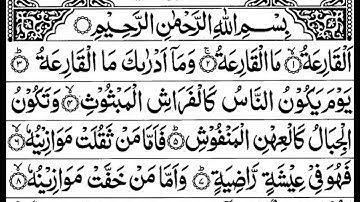 بِسْمِ اللّٰهِ الرَّحْمٰنِ الرَّحِيْمِ
اَلْقَارِعَةُ ۙ‏﴿۱﴾ مَا الْقَارِعَةُ ۚ‏﴿۲﴾ وَمَاۤ اَدْرٰىكَ مَا الْقَارِعَةُ ؕ‏﴿۳﴾
يَوْمَ يَكُوْنُ النَّاسُ كَالْفَرَاشِ الْمَبْثُوْثِۙ‏﴿۴﴾ وَتَكُوْنُ
الْجِبَالُ كَالْعِهْنِ الْمَنْفُوْشِؕ‏﴿۵﴾ فَاَمَّا مَنْ ثَقُلَتْ مَوَازِيْنُهٗۙ‏﴿۶﴾
فَهُوَ فِىْ عِيْشَةٍ رَّاضِيَةٍؕ‏﴿۷﴾ وَاَمَّا مَنْ خَفَّتْ مَوَازِيْنُهٗۙ‏﴿۸﴾